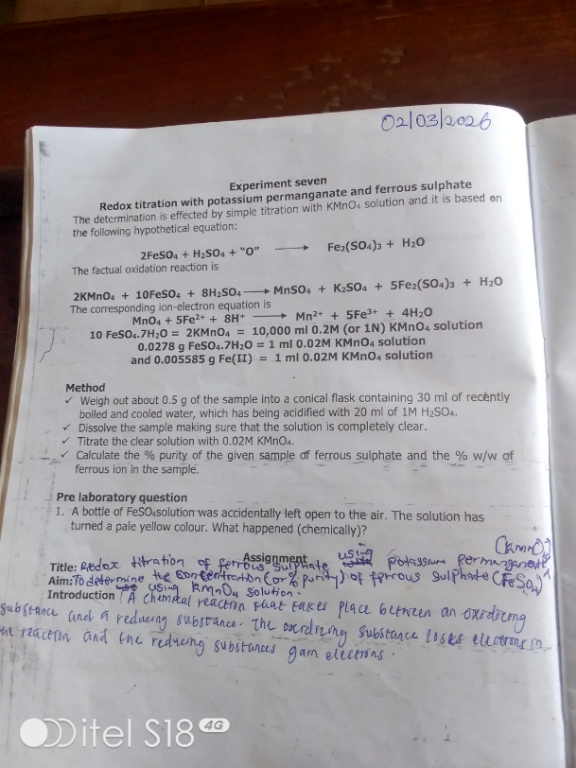 02/03/2026
Experiment seven
Redox titration with potassium permanganate and ferrous sulphate
The determination is effected by simple titration with KMnO₄ solution and it is based on
the following hypothetical equation:
2FeSO₄ + H₂SO₄ + "O" ⟶ Fe₂(SO₄)₃ + H₂O
The factual oxidation reaction is
2KMnO₄ + 10FeSO₄ + 8H₂SO₄ ⟶ MnSO₄ + K₂SO₄ + 5Fe₂(SO₄)₃ + H₂O
The corresponding ion-electron equation is
MnO₄ + 5Fe²⁺ + 8H⁺ ⟶ Mn²⁺ + 5Fe³⁺ + 4H₂O
10 FeSO₄.7H₂O = 2KMnO₄ = 10,000 ml 0.2M (or 1N) KMnO₄ solution
0.0278 g FeSO₄.7H₂O = 1 ml 0.02M KMnO₄ solution
and 0.005585 g Fe(II) = 1 ml 0.02M KMnO₄ solution
Method
✓ Weigh out about 0.5 g of the sample into a conical flask containing 30 ml of recently
boiled and cooled water, which has being acidified with 20 ml of 1M H₂SO₄.
✓ Dissolve the sample making sure that the solution is completely clear.
✓ Titrate the clear solution with 0.02M KMnO₄.
✓ Calculate the % purity of the given sample of ferrous sulphate and the % w/w of
ferrous ion in the sample.
Pre laboratory question
1. A bottle of FeSO₄solution was accidentally left open to the air. The solution has
turned a pale yellow colour. What happened (chemically)?
Assignment
(KMnO₄)
Title: Redox titration of ferrous sulphate using potassium permanganate
Aim: To determine the concentration (or % purity) of ferrous sulphate (FeSO₄)
using KMnO₄ solution.
Introduction: A chemical reaction that takes place between an oxidizing
substance and a reducing substance. The oxidizing substance loses electrons in
reaction and the reducing substances gain electrons.
itel S18 4G